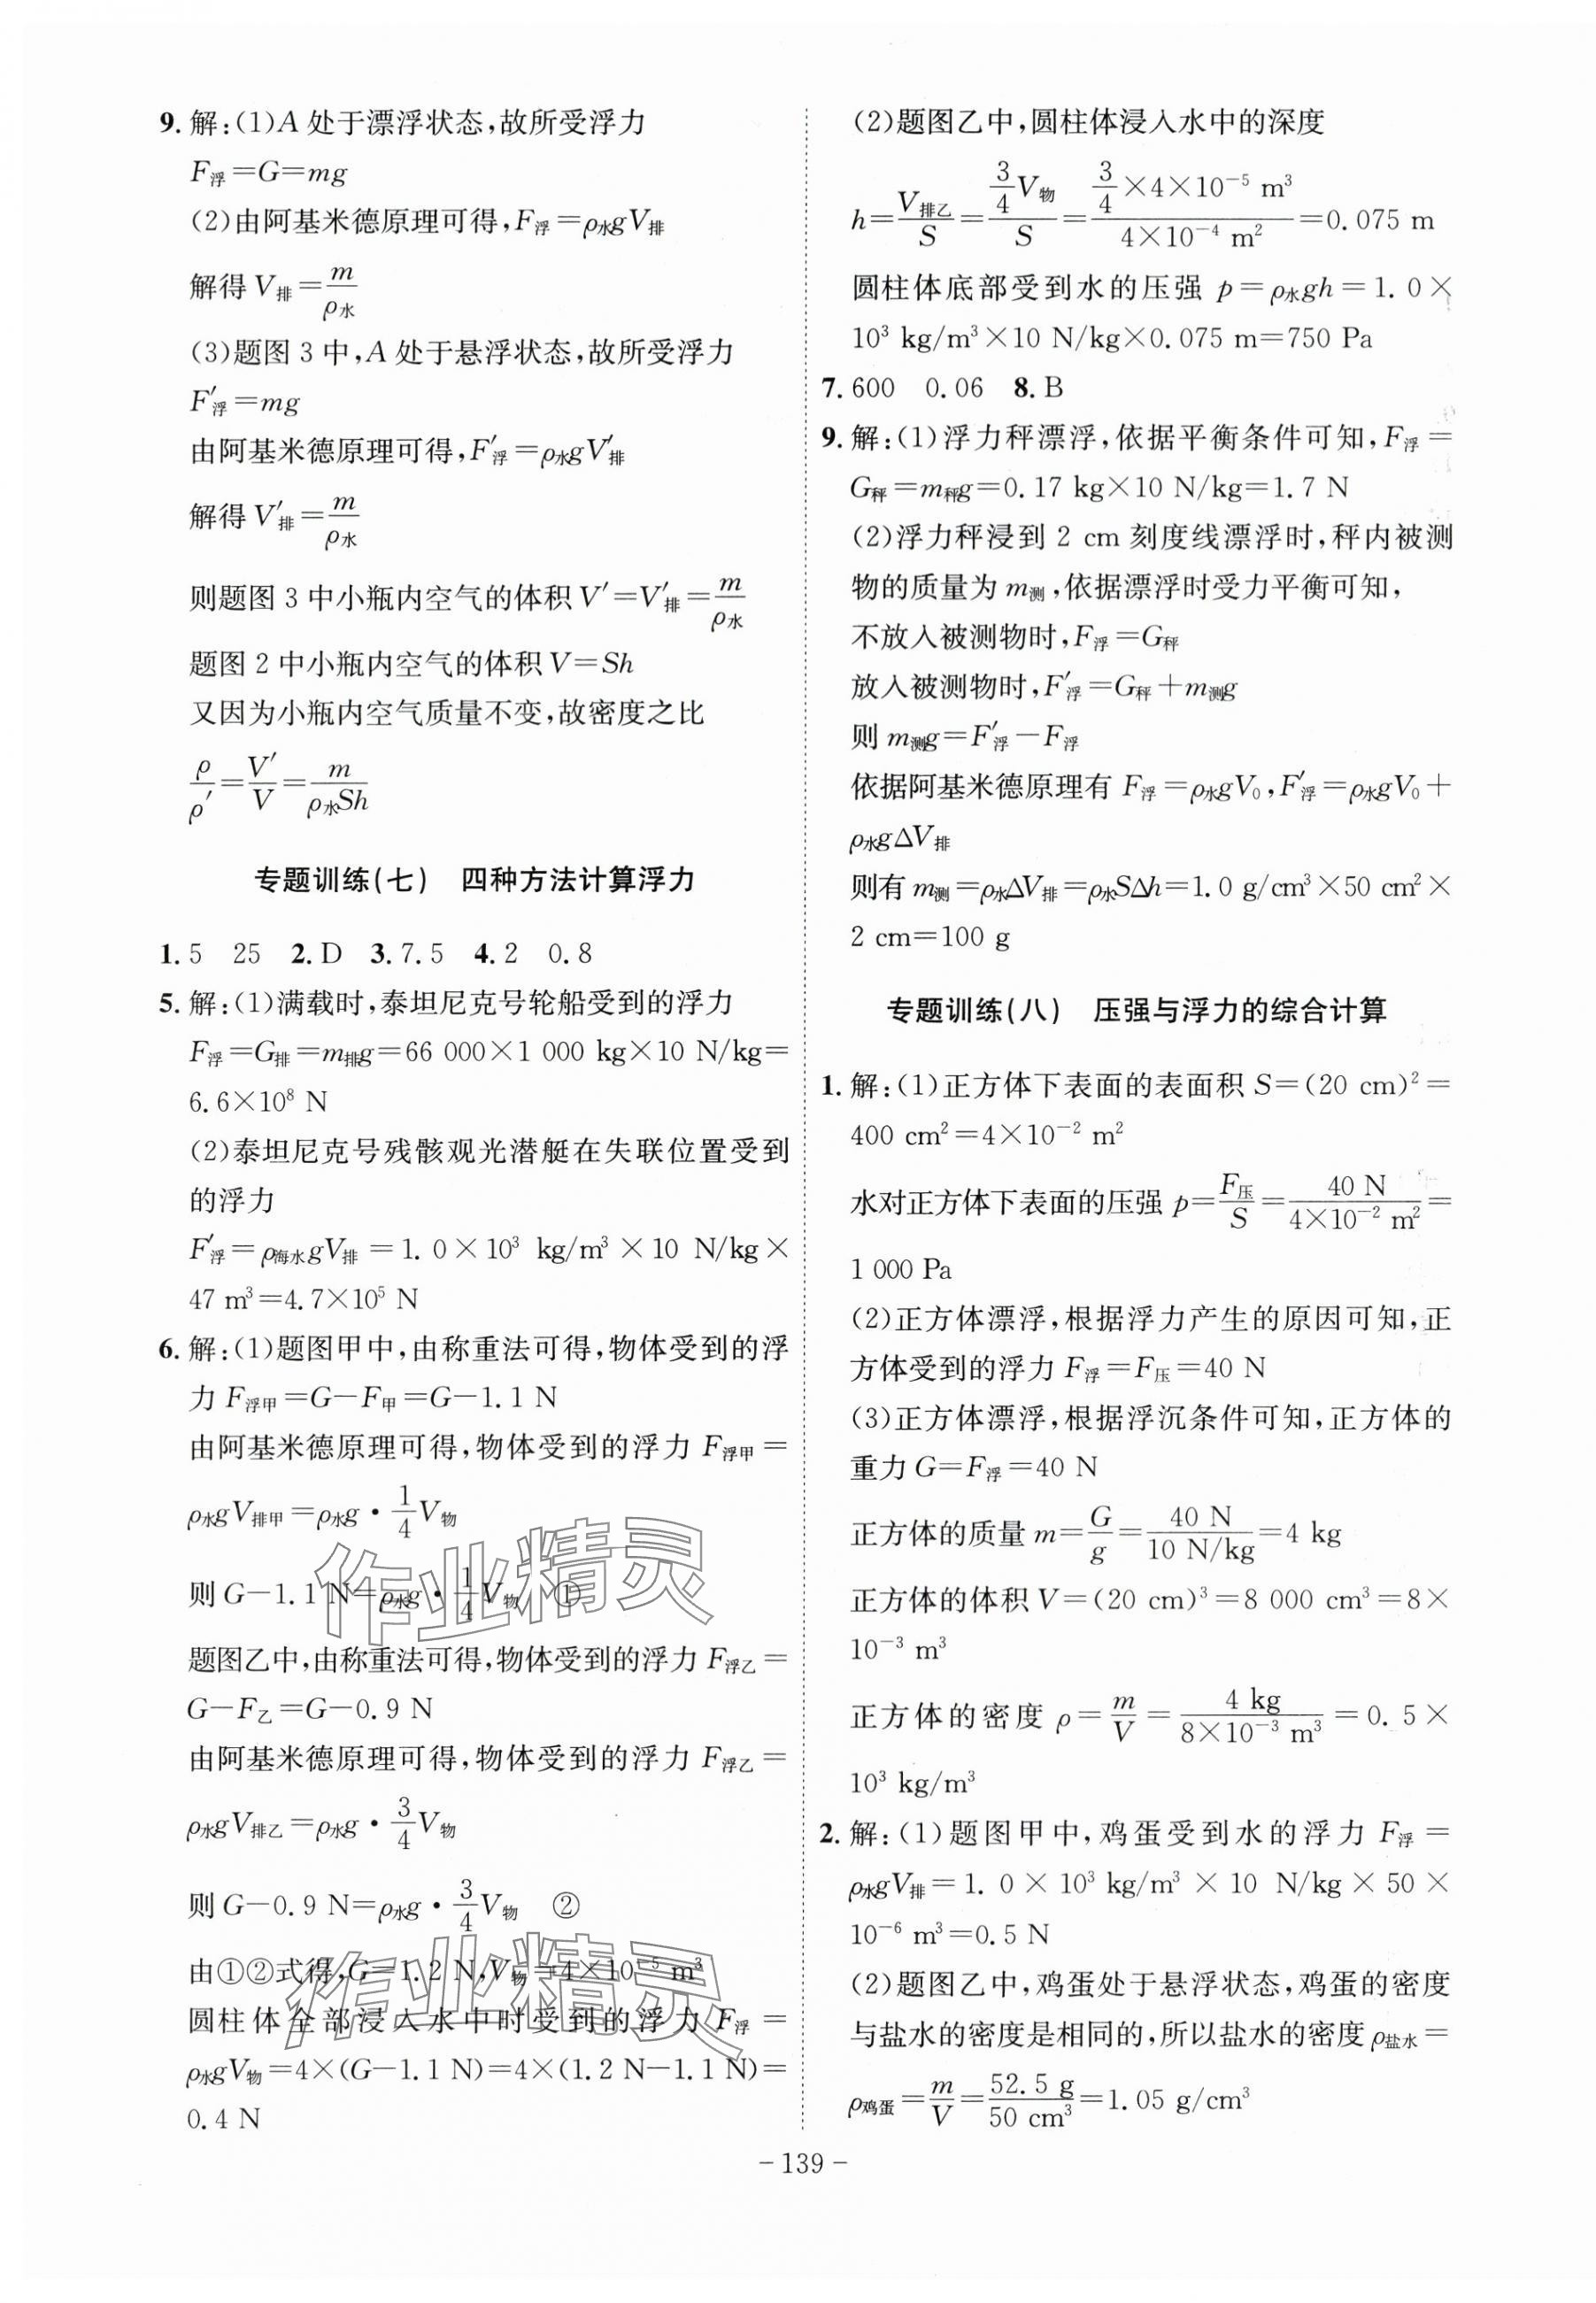 9. 解:(1)A 处于漂浮状态,故所受浮力
F浮=G=mg
(2)由阿基米德原理可得,F浮=ρ水gV排
解得 V排=m/ρ水
(3)题图 3 中,A 处于悬浮状态,故所受浮力
F′浮=mg
由阿基米德原理可得,F′浮=ρ水gV′排
解得 V′排=m/ρ水
则题图 3 中小瓶内空气的体积 V′=V′排=m/ρ水
题图 2 中小瓶内空气的体积 V=Sh
又因为小瓶内空气质量不变,故密度之比
ρ/ρ′=V′/V=m/ρ水Sh
专题训练(七) 四种方法计算浮力
1. 5 25 2. D 3. 7.5 4. 2 0.8
5. 解:(1)满载时,泰坦尼克号轮船受到的浮力
F浮=G排=m排g=66 000×1 000 kg×10 N/kg=
6.6×10⁸ N
(2)泰坦尼克号残骸观光潜艇在失联位置受到
的浮力
F′浮=ρ海水gV排=1.0×10³ kg/m³×10 N/kg×
47 m³=4.7×10⁵ N
6. 解:(1)题图甲中,由称重法可得,物体受到的浮
力 F浮甲=G-F甲=G-1.1 N
由阿基米德原理可得,物体受到的浮力 F浮甲=
ρ水gV排甲=ρ水g·1/4V物
则 G-1.1 N=ρ水g·1/4V物 ①
题图乙中,由称重法可得,物体受到的浮力 F浮乙=
G-F乙=G-0.9 N
由阿基米德原理可得,物体受到的浮力 F浮乙=
ρ水gV排乙=ρ水g·3/4V物
则 G-0.9 N=ρ水g·3/4V物 ②
由①②式得,G=1.2 N,V物=4×10⁻⁵ m³
圆柱体全部浸入水中时受到的浮力 F浮=
ρ水gV物=4×(G-1.1 N)=4×(1.2 N-1.1 N)=
0.4 N
作业精灵
作业精灵
(2)题图乙中,圆柱体浸入水中的深度
h=V排乙/S=3/4V物/S=3/4×4×10⁻⁵ m³/4×10⁻⁴ m²=0.075 m
圆柱体底部受到水的压强 p=ρ水gh=1.0×
10³ kg/m³×10 N/kg×0.075 m=750 Pa
7. 600 0.06 8. B
9. 解:(1)浮力秤漂浮,依据平衡条件可知,F浮=
G秤=m秤g=0.17 kg×10 N/kg=1.7 N
(2)浮力秤浸到 2 cm 刻度线漂浮时,秤内被测
物的质量为 m测,依据漂浮时受力平衡可知,
不放入被测物时,F浮=G秤
放入被测物时,F′浮=G秤+m测g
则 m测g=F′浮-F浮
依据阿基米德原理有 F浮=ρ水gV₀,F′浮=ρ水gV₀+
ρ水gΔV排
则有 m测=ρ水ΔV排=ρ水SΔh=1.0 g/cm³×50 cm²×
2 cm=100 g
专题训练(八) 压强与浮力的综合计算
1. 解:(1)正方体下表面的表面积 S=(20 cm)²=
400 cm²=4×10⁻² m²
水对正方体下表面的压强 p=F压/S=40 N/4×10⁻² m²=
1 000 Pa
(2)正方体漂浮,根据浮力产生的原因可知,正
方体受到的浮力 F浮=F压=40 N
(3)正方体漂浮,根据浮沉条件可知,正方体的
重力 G=F浮=40 N
正方体的质量 m=G/g=40 N/10 N/kg=4 kg
正方体的体积 V=(20 cm)³=8 000 cm³=8×
10⁻³ m³
正方体的密度 ρ=m/V=4 kg/8×10⁻³ m³=0.5×
10³ kg/m³
2. 解:(1)题图甲中,鸡蛋受到水的浮力 F浮=
ρ水gV排=1.0×10³ kg/m³×10 N/kg×50×
10⁻⁶ m³=0.5 N
(2)题图乙中,鸡蛋处于悬浮状态,鸡蛋的密度
与盐水的密度是相同的,所以盐水的密度 ρ盐水=
ρ鸡蛋=m/V=52.5 g/50 cm³=1.05 g/cm³
- 139 -